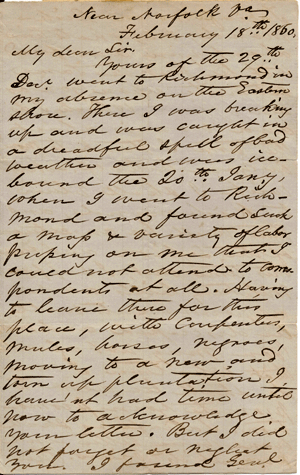 Near Norfolk Va
February 18th 1860.
My dear Sir.
Yours of the 29th
Decr went to Richmond in
my absence on the Eastern
shore. There I was breaking
up and was caught in
a dreadful spell of bad
weather and was ice-
bound the 20th Jany,
when I went to Rich-
mond and found such
a mass & variety of labor
pressing on me that I
could not attend to corres-
pondents at all. Having
to leave there for this
place, with Carpenters,
mules, horses, negroes,
moving to a new and
torn up plantation I
haven't had time until
now to acknowledge
your letter. But I did
not forget or neglect
you. I found